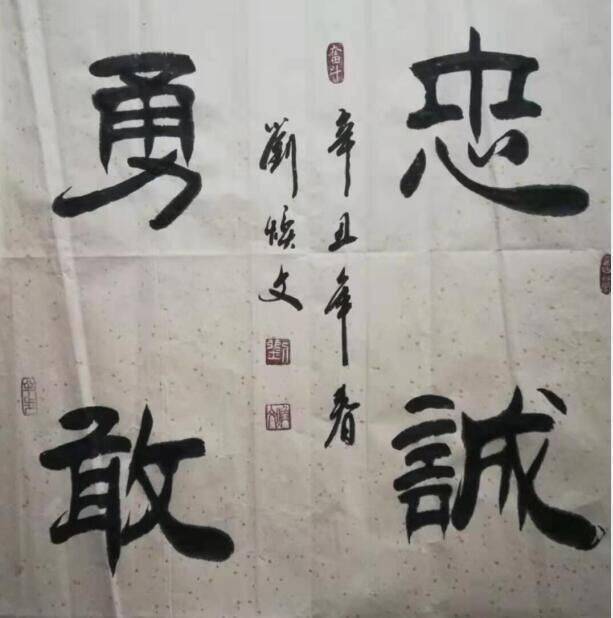 忠誠
勇敢
奮斗
辛丑年春
劉焕文